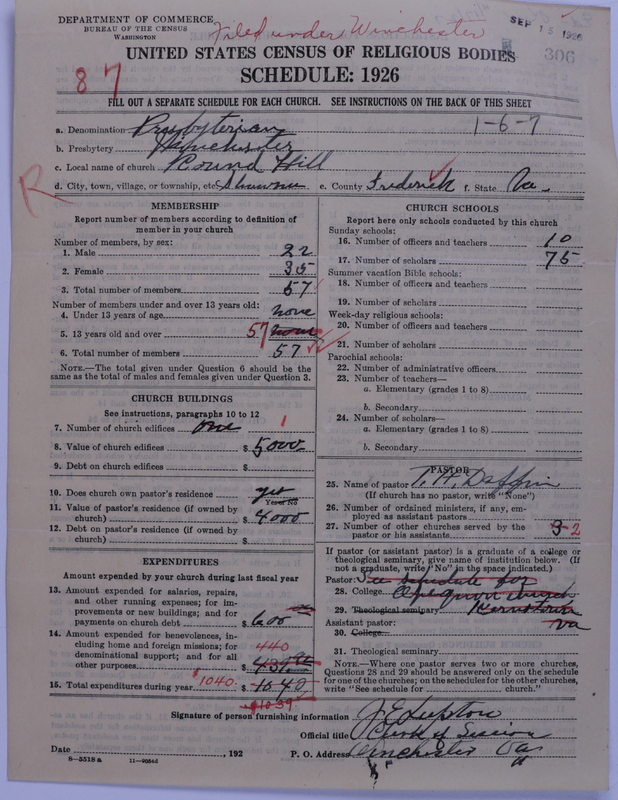 DEPARTMENT OF COMMERCE
BUREAU OF THE CENSUS
WASHINGTON
Filed under Winchester
SEP 15 1926
306
UNITED STATES CENSUS OF RELIGIOUS BODIES
SCHEDULE: 1926
87
FILL OUT A SEPARATE SCHEDULE FOR EACH CHURCH. SEE INSTRUCTIONS ON THE BACK OF THIS SHEET
a. Denomination Presbyterian 1-6-7
b. Presbytery Winchester
c. Local name of church Round Hill
R
d. City, town, village, or township, etc. e. County Frederick f. State Va.
MEMBERSHIP
Report number of members according to definition of
member in your church
Number of members, by sex:
1. Male 22
2. Female 35
3. Total number of members 57
Number of members under and over 13 years old:
4. Under 13 years of age none
5. 13 years old and over 57 none
6. Total number of members 57
NOTE.—The total given under Question 6 should be
same as the total of males and females given under Question 3.
CHURCH BUILDINGS
See instructions, paragraphs 10 to 12
7. Number of church edifices one 1
8. Value of church edifices $ 5000
9. Debt on church edifices $
10. Does church own pastor's residence yes
Yes or No
11. Value of pastor's residence (if owned by
church) $ 4000
12. Debt on pastor's residence (if owned by
church) $
EXPENDITURES
Amount expended by your church during last fiscal year
13. Amount expended for salaries, repairs,
and other running expenses; for im-
provements or new buildings; and for
payments on church debt $ 600
14. Amount expended for benevolences, in-
cluding home and foreign missions; for
denominational support; and for all
other purposes 440 $ 439
15. Total expenditures during year $1040. $ 1040
$1039
CHURCH SCHOOLS
Report here only schools conducted by this church
Sunday schools:
16. Number of officers and teachers 10
17. Number of scholars 75
Summer vacation Bible schools:
18. Number of officers and teachers
19. Number of scholars
Week-day religious schools:
20. Number of officers and teachers
21. Number of scholars
Parochial schools:
22. Number of administrative officers
23. Number of teachers—
a. Elementary (grades 1 to 8)
b. Secondary
24. Number of scholars—
a. Elementary (grades 1 to 8)
b. Secondary
PASTOR
25. Name of pastor T. H. Daffin
(If church has no pastor, write "None")
26. Number of ordained ministers, if any, em-
ployed as assistant pastors
27. Number of other churches served by the
pastor or his assistants 3-2
If pastor (or assistant pastor) is a graduate of a college or
theological seminary, give name of institution below. (If
not a graduate, write "No" in the space indicated.)
Pastor: See schedule for
28. College Opequon church
29. Theological seminary Kernstown
Assistant pastor: Va
30. College
31. Theological seminary
NOTE.—Where one pastor serves two or more churches,
Questions 28 and 29 should be answered only on the schedule
for one of the churches; on the schedules for the other churches,
write "See schedule for church."
Signature of person furnishing information J E Lupton
Official title Clerk of Session
Date , 192 P. O. Address Winchester Va
8—5518 a 11—9054d